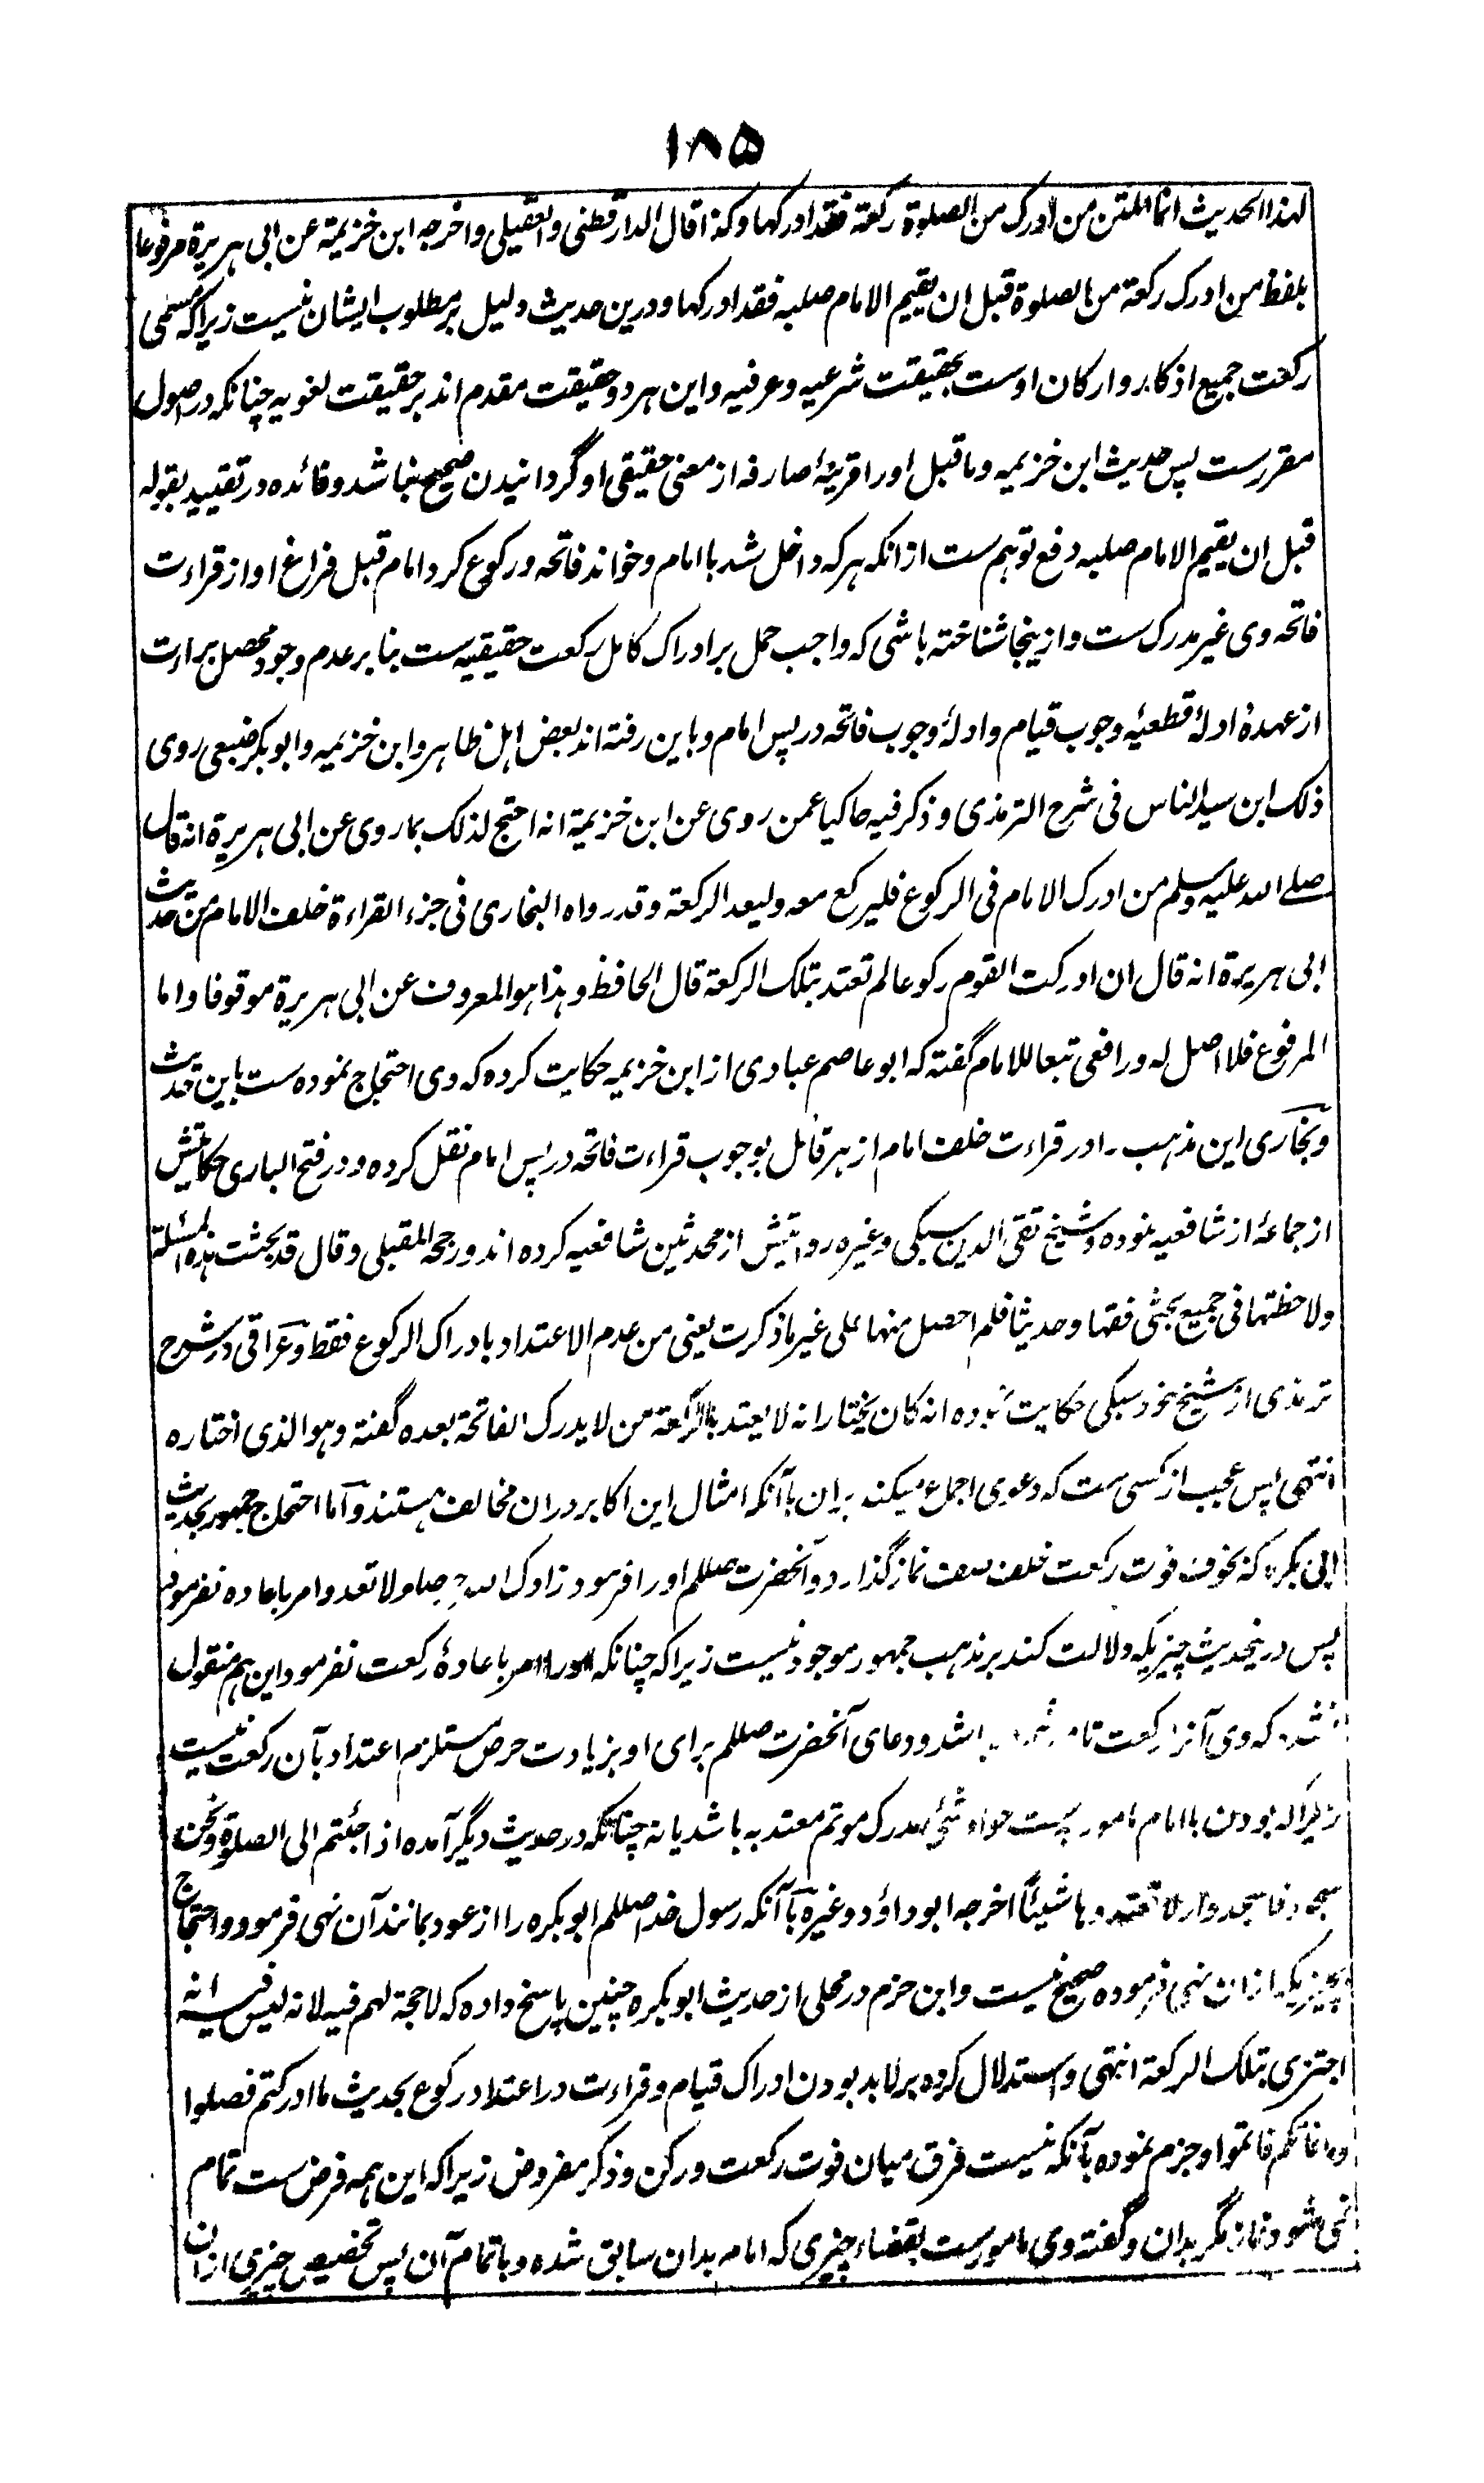 ۱۸۵
لهذا الحدیث انما المتن من ادرک من الصلوة رکعة فقد ادرکها وکذا قال الدارقطنی والعقیلی واخرجه ابن خزیمة عن ابی هریرة مرفوعا
بلفظ من ادرک رکعة من الصلوة قبل ان یقیم الامام صلبه فقد ادرکها ودرین حدیث دلیل بر مطلوب ایشان نیست زیراکه مسمی
رکعت جمیع اذکار وارکان اوست بحقیقت شرعیه وعرفیه واین هر دو حقیقت مقدم اند بر حقیقت لغویه چنانکه در اصول
مقررست پس حدیث ابن خزیمه وما قبل اورا قرینهٔ صارفه از معنی حقیقی او گردانیدن صحیح نباشد وفائده در تقیید بقوله
قبل ان یقیم الامام صلبه دفع توهم ست ازانکه هرکه داخل شد با امام وخواند فاتحه ورکوع کرد امام قبل فراغ او از قراءت
فاتحه وی غیر مدرک ست وازینجا شناخته باشی که واجب حمل بر ادراک کامل رکعت حقیقیه ست بنابر عدم وجود محصل براءت
از عهدهٔ ادلهٔ قطعیهٔ وجوب قیام وادلهٔ وجوب فاتحه در پس امام وباین رفته اند بعض اهل ظاهر وابن خزیمه وابوبکر ضبعی روی
ذلک ابن سید الناس فی شرح الترمذی وذکر فیه حاکیا عمن روی عن ابن خزیمة انه احتج لذلک بما روی عن ابی هریرة انه قال
صلے الله علیه وسلم من ادرک الامام فی الرکوع فلیرکع معه ولیعد الرکعة وقد رواه البخاری فی جزء القراءة خلف الامام من حدیث
ابی هریرة انه قال ان ادرکت القوم رکوعا لم تعتد بتلک الرکعة قال الحافظ وهذا هو المعروف عن ابی هریرة موقوفا واما
المرفوع فلا اصل له ورافعی تبعا للامام گفته که ابو عاصم عبادی از ابن خزیمه حکایت کرده که وی احتجاج نموده ست باین حدیث
وبخاری این مذهب را در قراءت خلف امام از هر قائل بوجوب قراءت فاتحه در پس امام نقل کرده ودر فتح الباری حکایتش
از جماعهٔ از شافعیه نموده وشیخ تقی الدین سبکی وغیره روایتش از محدثین شافعیه کرده اند ورجحه المقبلی وقال قد بحثت هذه المسئلة
ولاحظتها فی جمیع بحثی فقها وحدیثا فلم احصل منها علی غیر ما ذکرت یعنی من عدم الاعتداد بادراک الرکوع فقط وعراقی در شرح
ترمذی از شیخ خود سبکی حکایت نموده انه کان یختار انه لا یعتد بالرکعة من لا یدرک الفاتحة بعده گفته وهو الذی اختاره
انتهی پس عجب از کسی ست که دعوی اجماع میکند بران باآنکه امثال این اکابر دران مخالف هستند واما احتجاج جمهور بحدیث
ابی بکره که بخوف فوت رکعت خلف صف نماز گذارد وآنحضرت صللم اورا فرمود زادک الله حرصا ولا تعد وامر باعاده نفرمود
پس درینحدیث چیزیکه دلالت کند بر مذهب جمهور موجود نیست زیراکه چنانکه اورا امر باعادهٔ رکعت نفرمود این هم منقول
نشده که وی آنرا رکعت تامه شمرده باشد ودعای آنحضرت صللم برای او بزیادت حرص مستلزم اعتداد بآن رکعت نیست
زیراکه بودن با امام مامور به است خواه شئ مدرک مؤتم معتد به باشد یا نه چنانکه در حدیث دیگر آمده اذا جئتم الی الصلوة ونحن
سجود فاسجدوا ولا تعتدوها شیئا اخرجه ابو داؤد وغیره باآنکه رسول خدا صللم ابوبکره را از عود بمانند آن نهی فرمود واحتجاج
بچیزیکه ازان نهی فرموده صحیح نیست وابن حزم در محلی از حدیث ابوبکره چنین پاسخ داده که لا حجة لهم فیه لانه لیس فیه انه
اجتزی بتلک الرکعة انتهی واستدلال کرده بر لابد بودن ادراک قیام وقراءت در اعتداد رکوع بحدیث ما ادرکتم فصلوا
وما فاتکم فاتموا وجزم نموده بآنکه نیست فرق میان فوت رکعت ورکن وذکر مفروض زیراکه این همه فرض ست تمام
نمی شود نماز مگر بدان وگفته وی مامورست بقضاء چیزی که امام بدان سابق شده وباتمام آن پس تخصیص چیزی ازان